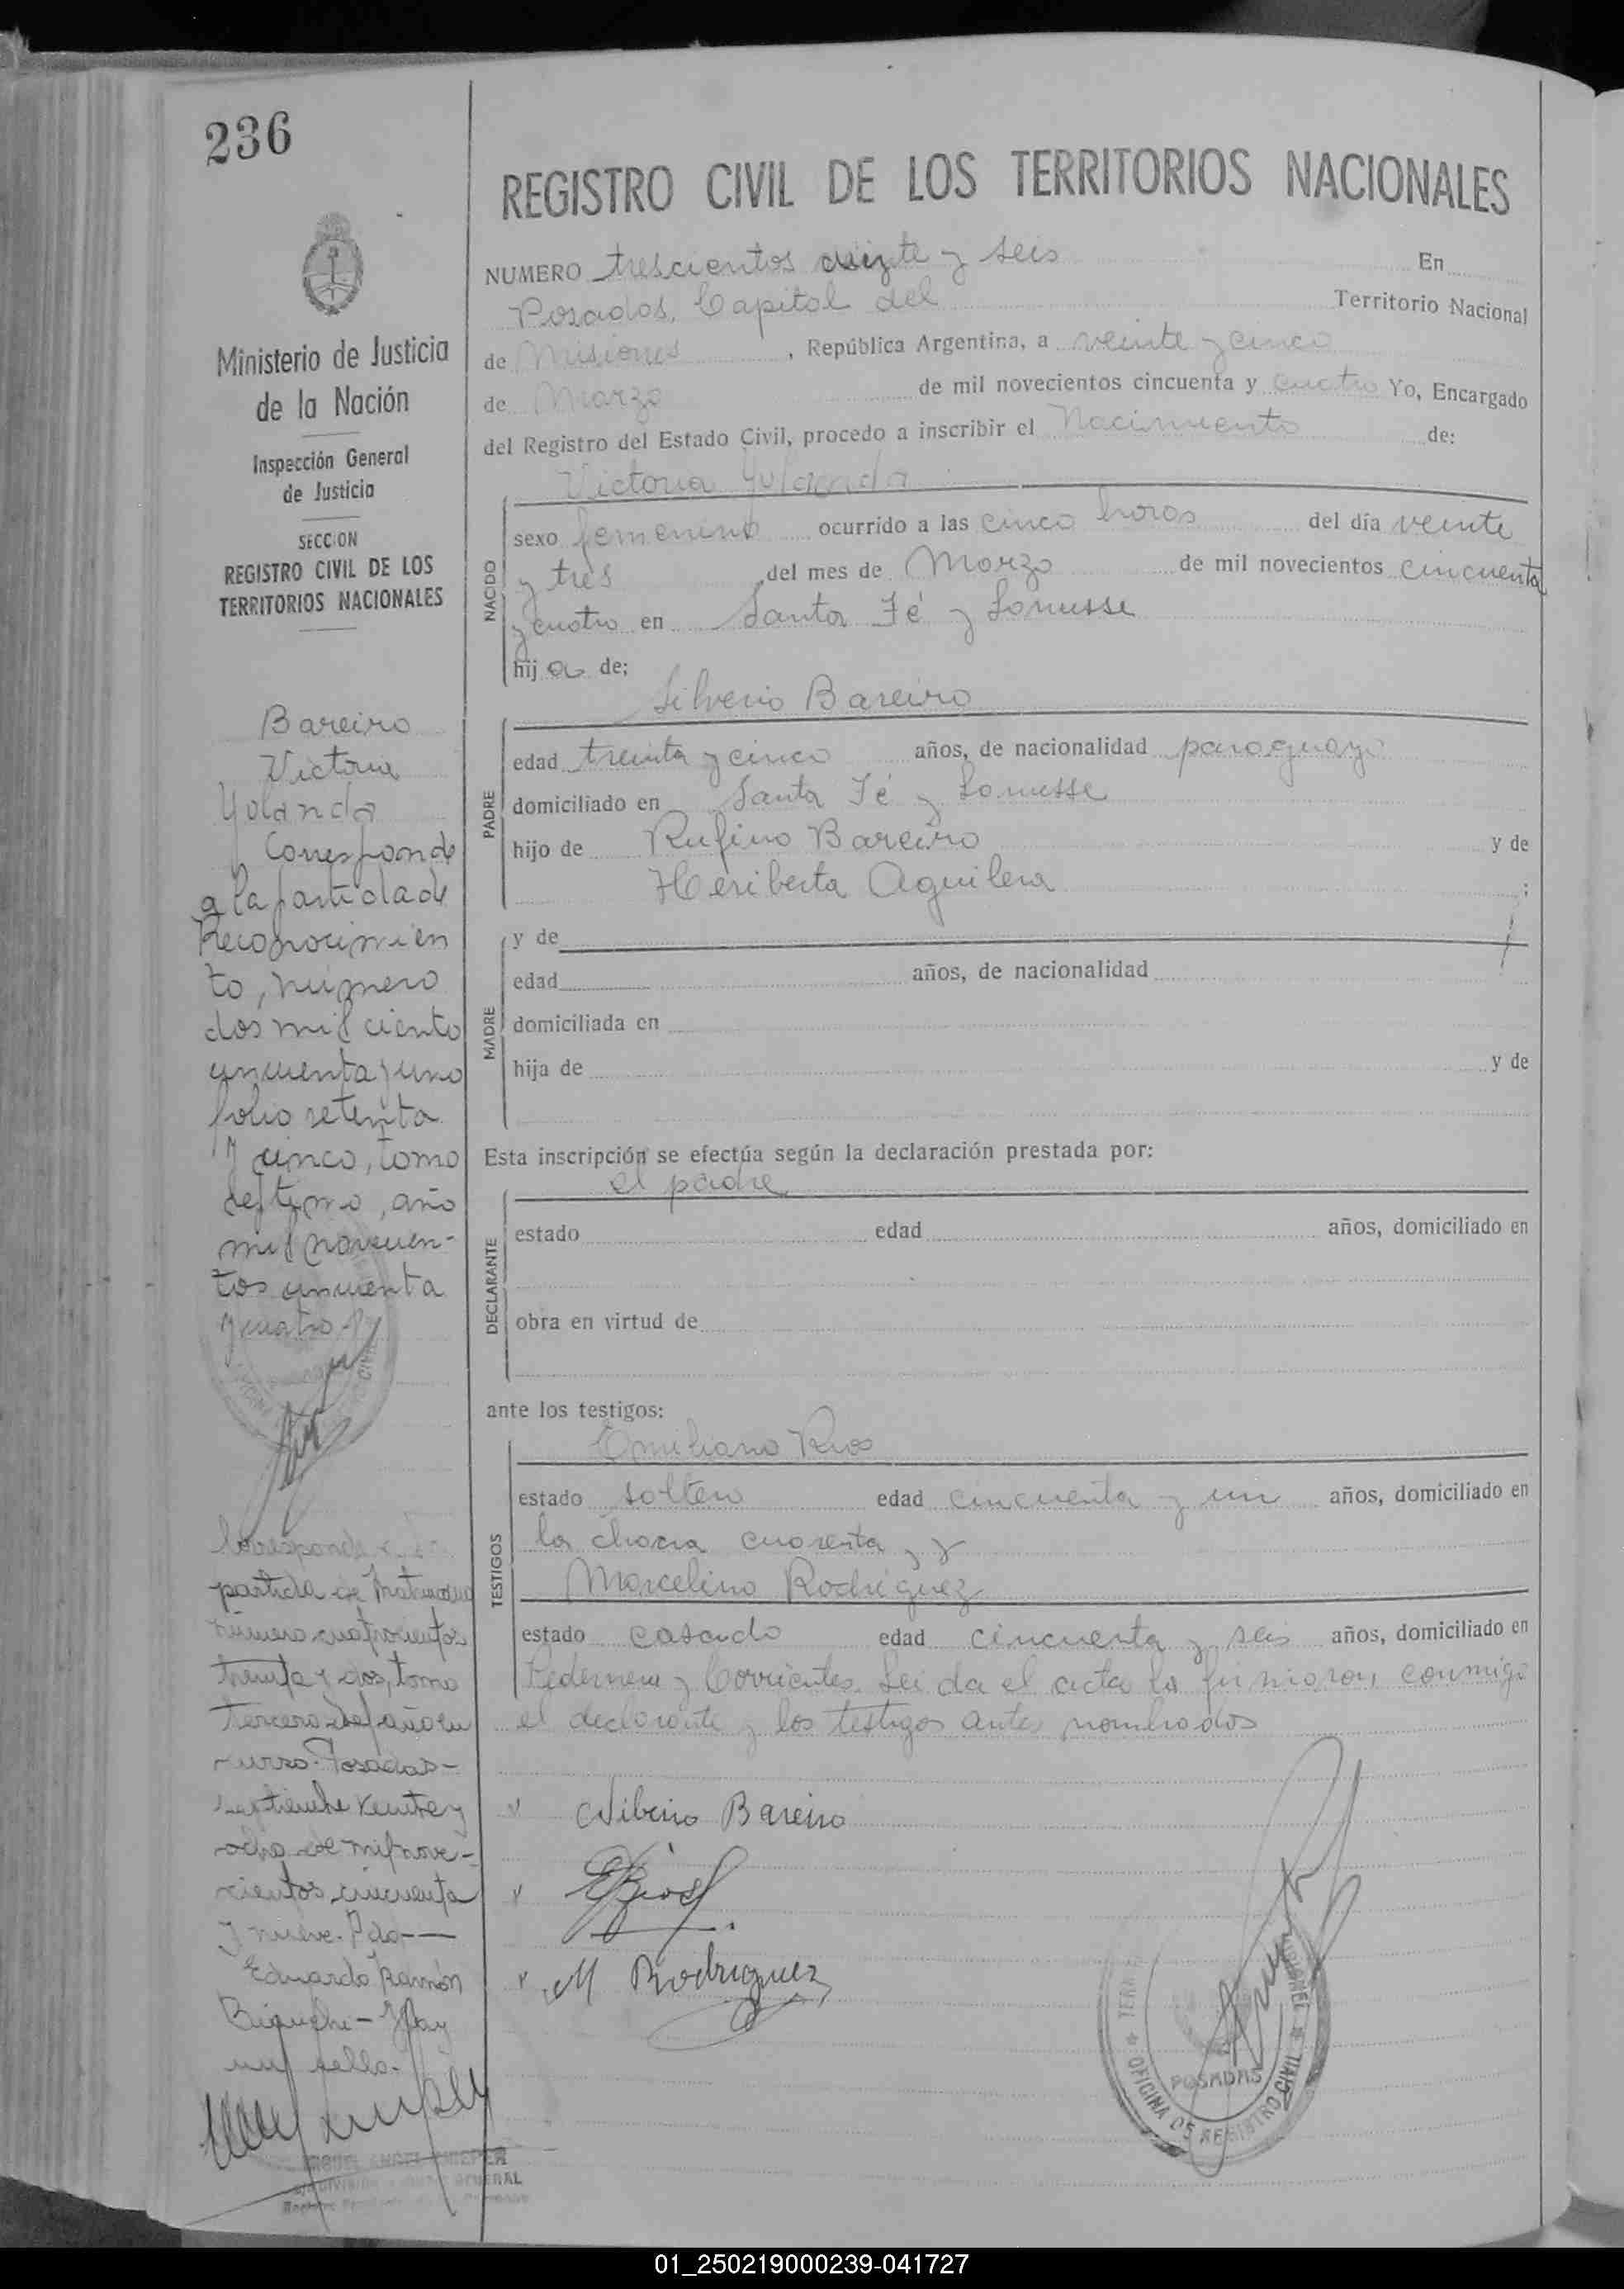 236
Ministerio de Justicia
de la Nación
Inspección General
de Justicia
SECCION
REGISTRO CIVIL DE LOS
TERRITORIOS NACIONALES
Bareiro
Victoria
Yolanda
Corresponde
a la partida de
Reconocimien
to, número
dos mil ciento
cincuenta y uno
folio setenta
y cinco, tomo
septimo, año
mil novecien-
tos cincuenta
y cuatro
Corresponde a
partida de Matrimonio
número cuatrocientos
treinta y dos, tomo
tercero del año en
curso. Posadas-
septiembre veinte y
ocho de mil nove-
cientos cincuenta
y nueve. Pdo—
Eduardo Ramón
Hay
un sello.
REGISTRO CIVIL DE LOS TERRITORIOS NACIONALES
NUMERO trescientos veinte y seis En
Posadas, Capital del Territorio Nacional
de Misiones, República Argentina, a veinte y cinco
de Marzo de mil novecientos cincuenta y cuatro Yo, Encargado
del Registro del Estado Civil, procedo a inscribir el Nacimiento de:
Victoria Yolanda
NACIDO
sexo femenino ocurrido a las cinco horas del día veinte
y tres del mes de Marzo de mil novecientos cincuenta
y cuatro en Santa Fé y
hija de;
Silverio Bareiro
PADRE
edad treinta y cinco años, de nacionalidad paraguayo
domiciliado en Santa Fé y
hijo de Rufino Bareiro y de
Heriberta Aguilera ;
MADRE
y de
edad años, de nacionalidad
domiciliada en
hija de y de
Esta inscripción se efectúa según la declaración prestada por:
el padre
DECLARANTE
estado edad años, domiciliado en
obra en virtud de
ante los testigos:
Emiliano Rios
TESTIGOS
estado soltero edad cincuenta y un años, domiciliado en
la chacra cuarenta, y
Marcelino Rodriguez
estado casado edad cincuenta y seis años, domiciliado en
Pedernera y Corrientes. Leida el acta la firmaron conmigo
el declarante y los testigos antes nombrados
Silverio Bareiro
ERios
M Rodriguez
POSADAS
OFICINA DE REGISTRO CIVIL
01_250219000239-041727